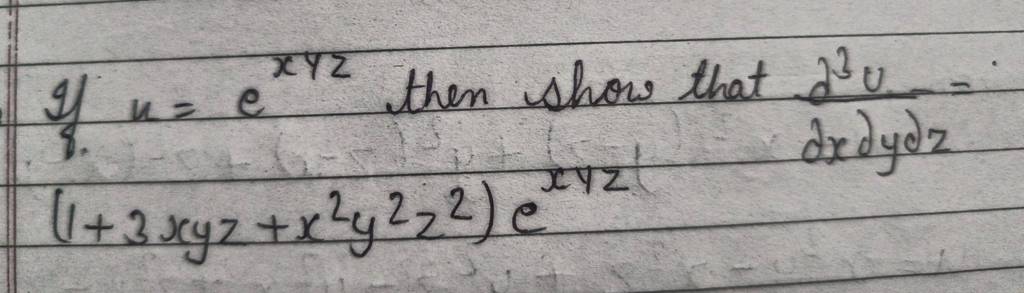 If u = e^xyz then show that ∂³u/∂x∂y∂z =
(1+3xyz+x²y²z²)e^xyz